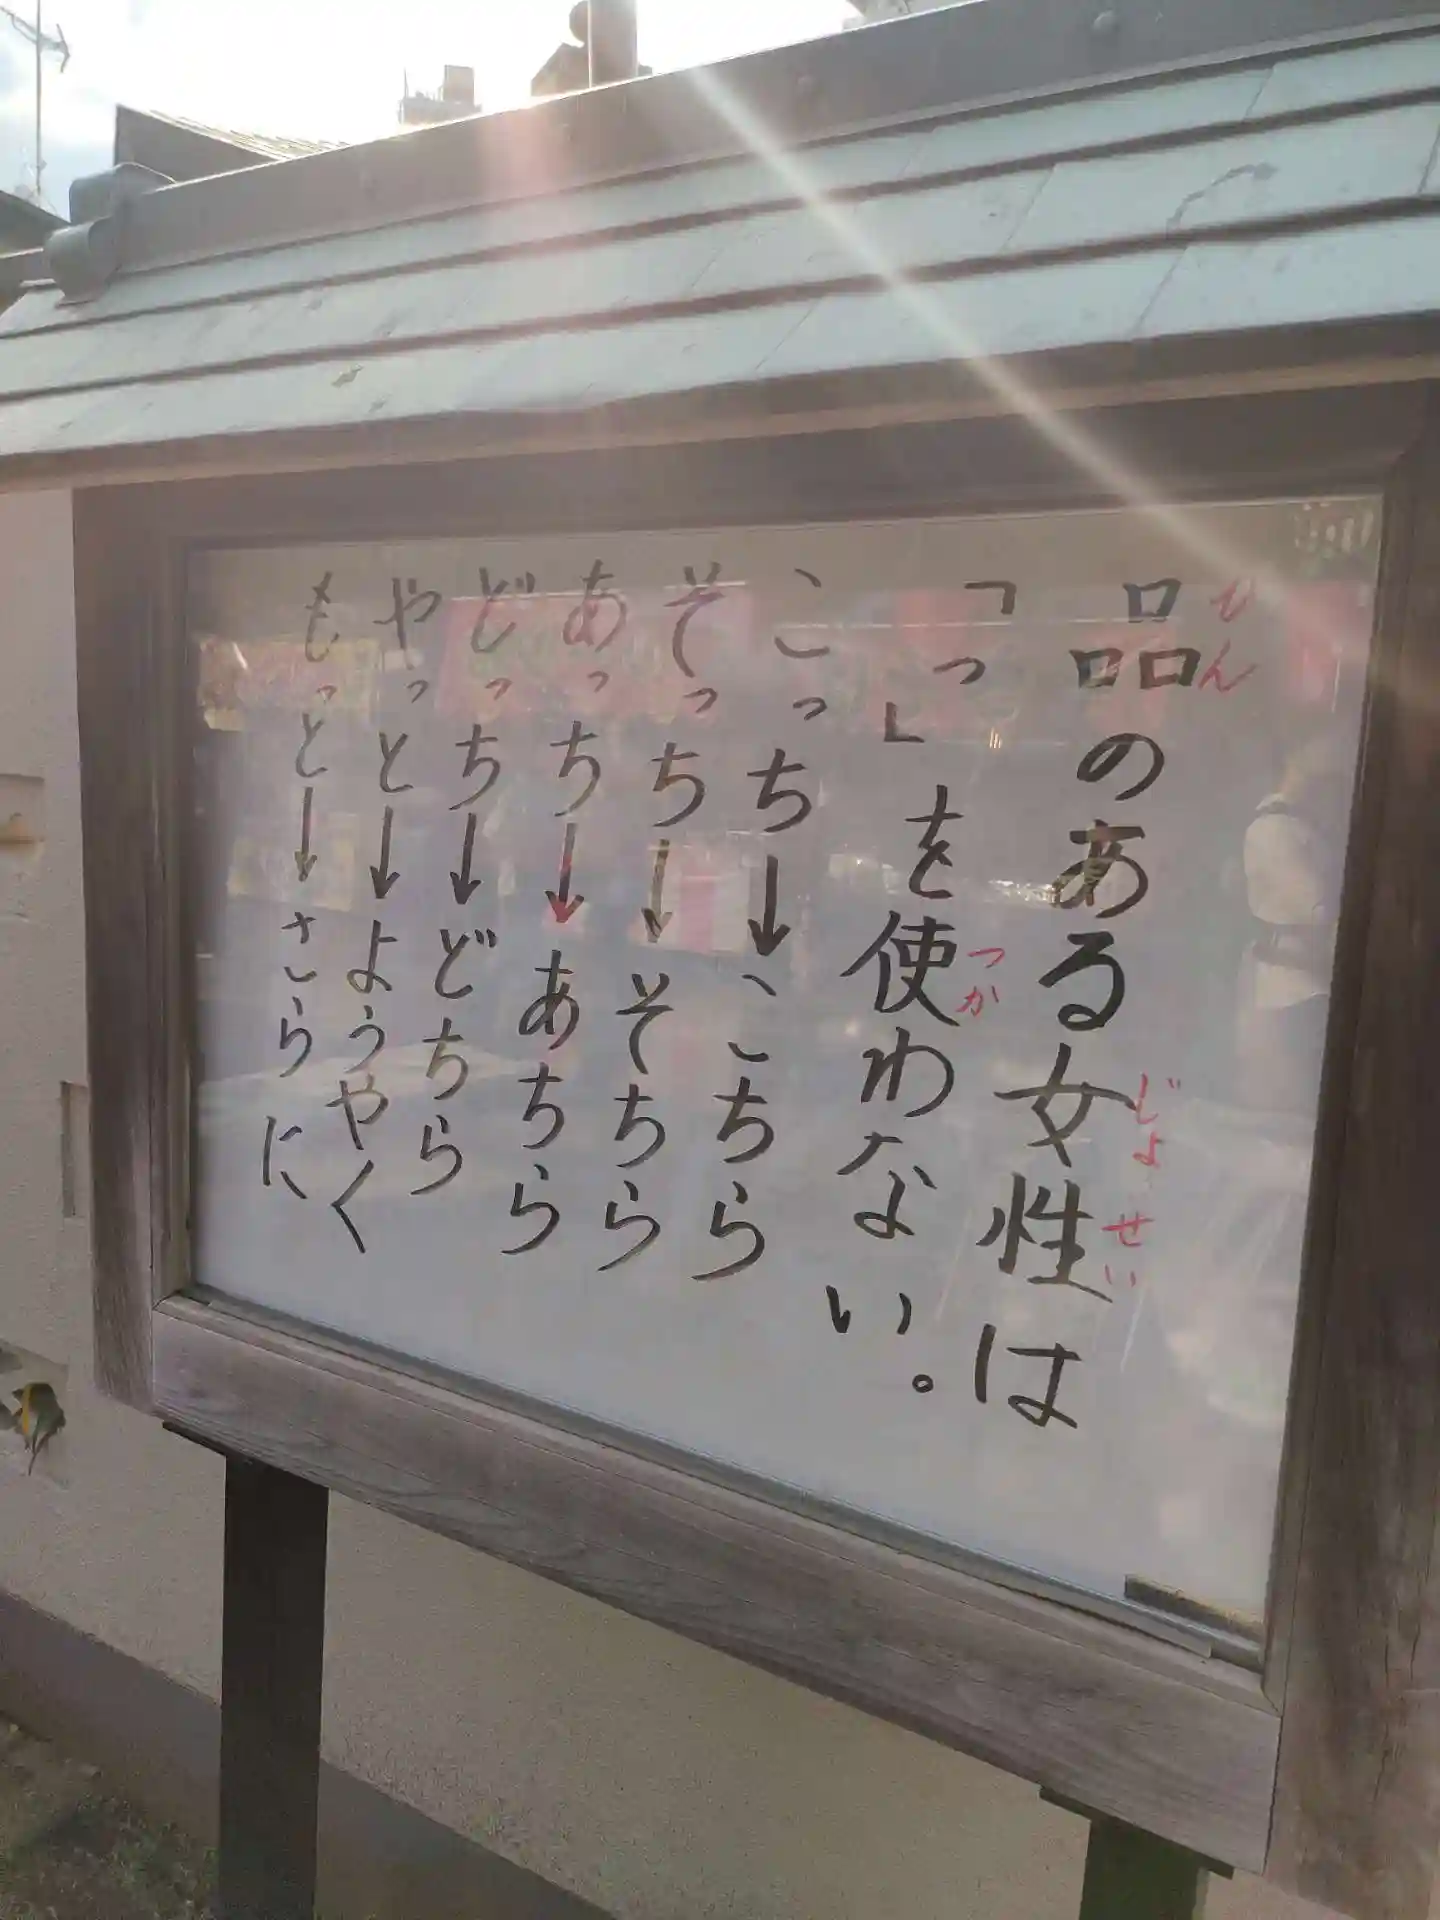 品のある女性は
ひん
じょせい
「っ」を使わない。
つか
こっち→こちら
そっち→そちら
あっち→あちら
どっち→どちら
やっと→ようやく
もっと→さらに